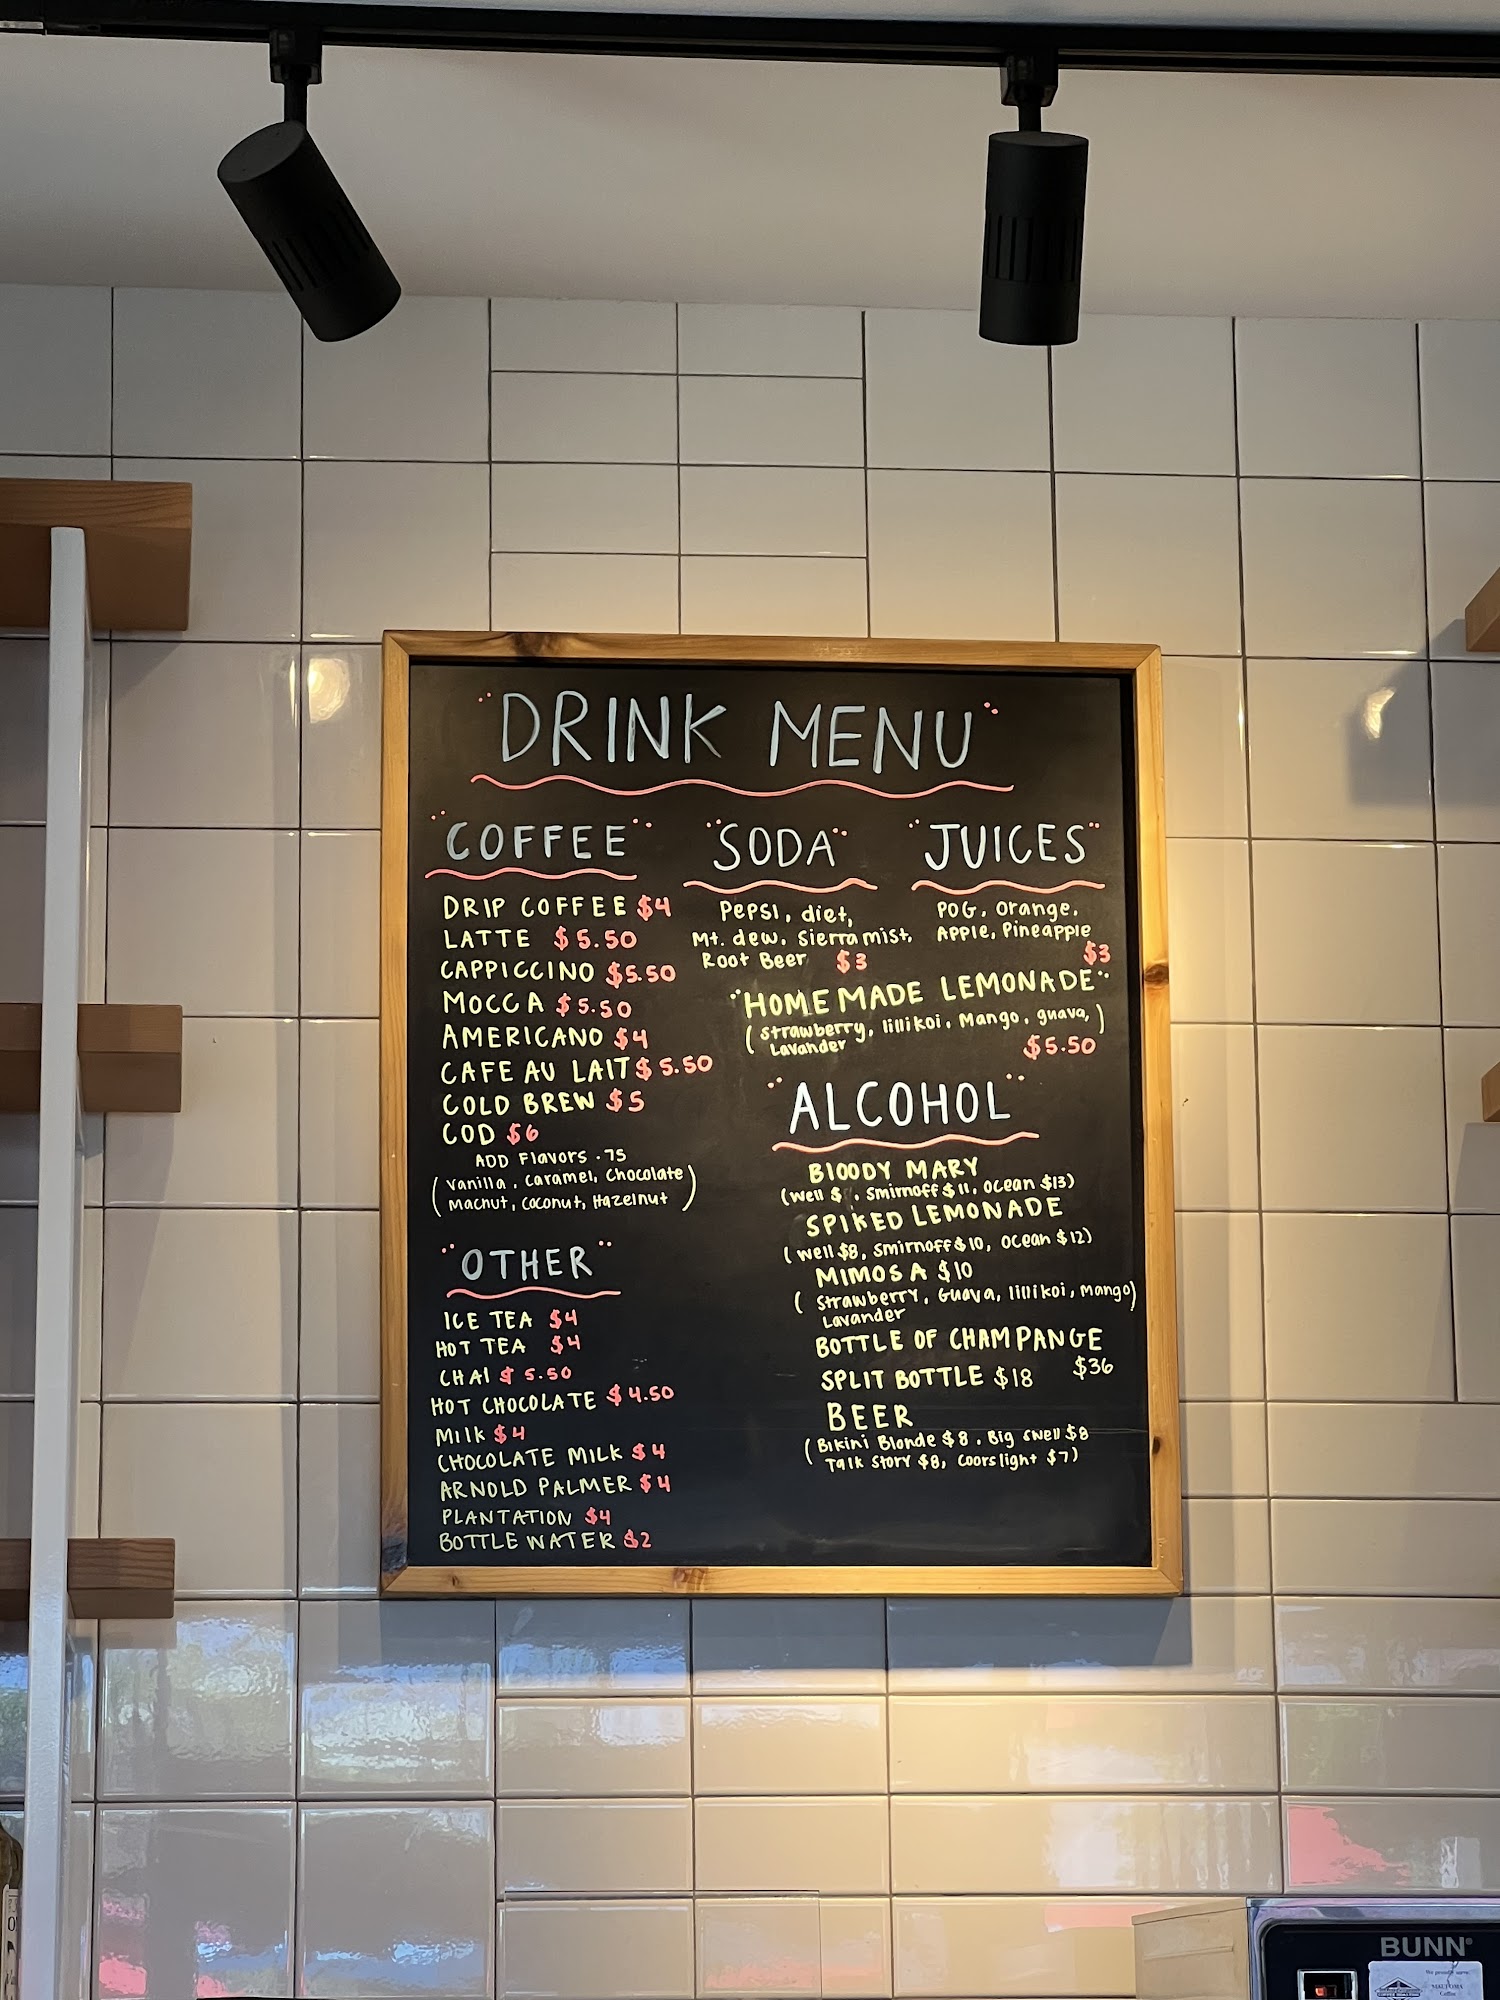 DRINK MENU
COFFEE
DRIP COFFEE $4
LATTE $5.50
CAPPICCINO $5.50
MOCCA $5.50
AMERICANO $4
CAFE AU LAIT $5.50
COLD BREW $5
COD $6
ADD Flavors .75
(Vanilla, Caramel, Chocolate
Macnut, Coconut, Hazelnut)
OTHER
ICE TEA $4
HOT TEA $4
CHAI $5.50
HOT CHOCOLATE $4.50
Milk $4
CHOCOLATE MILK $4
ARNOLD PALMER $4
PLANTATION $4
BOTTLE WATER $2
SODA
Pepsi, diet,
Mt. dew, Sierra mist,
Root Beer $3
JUICES
POG, Orange,
Apple, Pineapple
$3
HOMEMADE LEMONADE
(Strawberry, lillikoi, Mango, guava,)
Lavander
$5.50
ALCOHOL
BlOODY MARY
(Well $ , Smirnoff $11, Ocean $13)
SPIKED LEMONADE
(Well $8, Smirnoff $10, Ocean $12)
MIMOSA $10
(Strawberry, Guava, lillikoi, Mango)
Lavander
BOTTLE OF CHAMPANGE
$36
SPLIT BOTTLE $18
BEER
(Bikini Blonde $8, Big Swell $8
Talk Story $8, Coors light $7)
BUNN
We proudly serve
Coffee